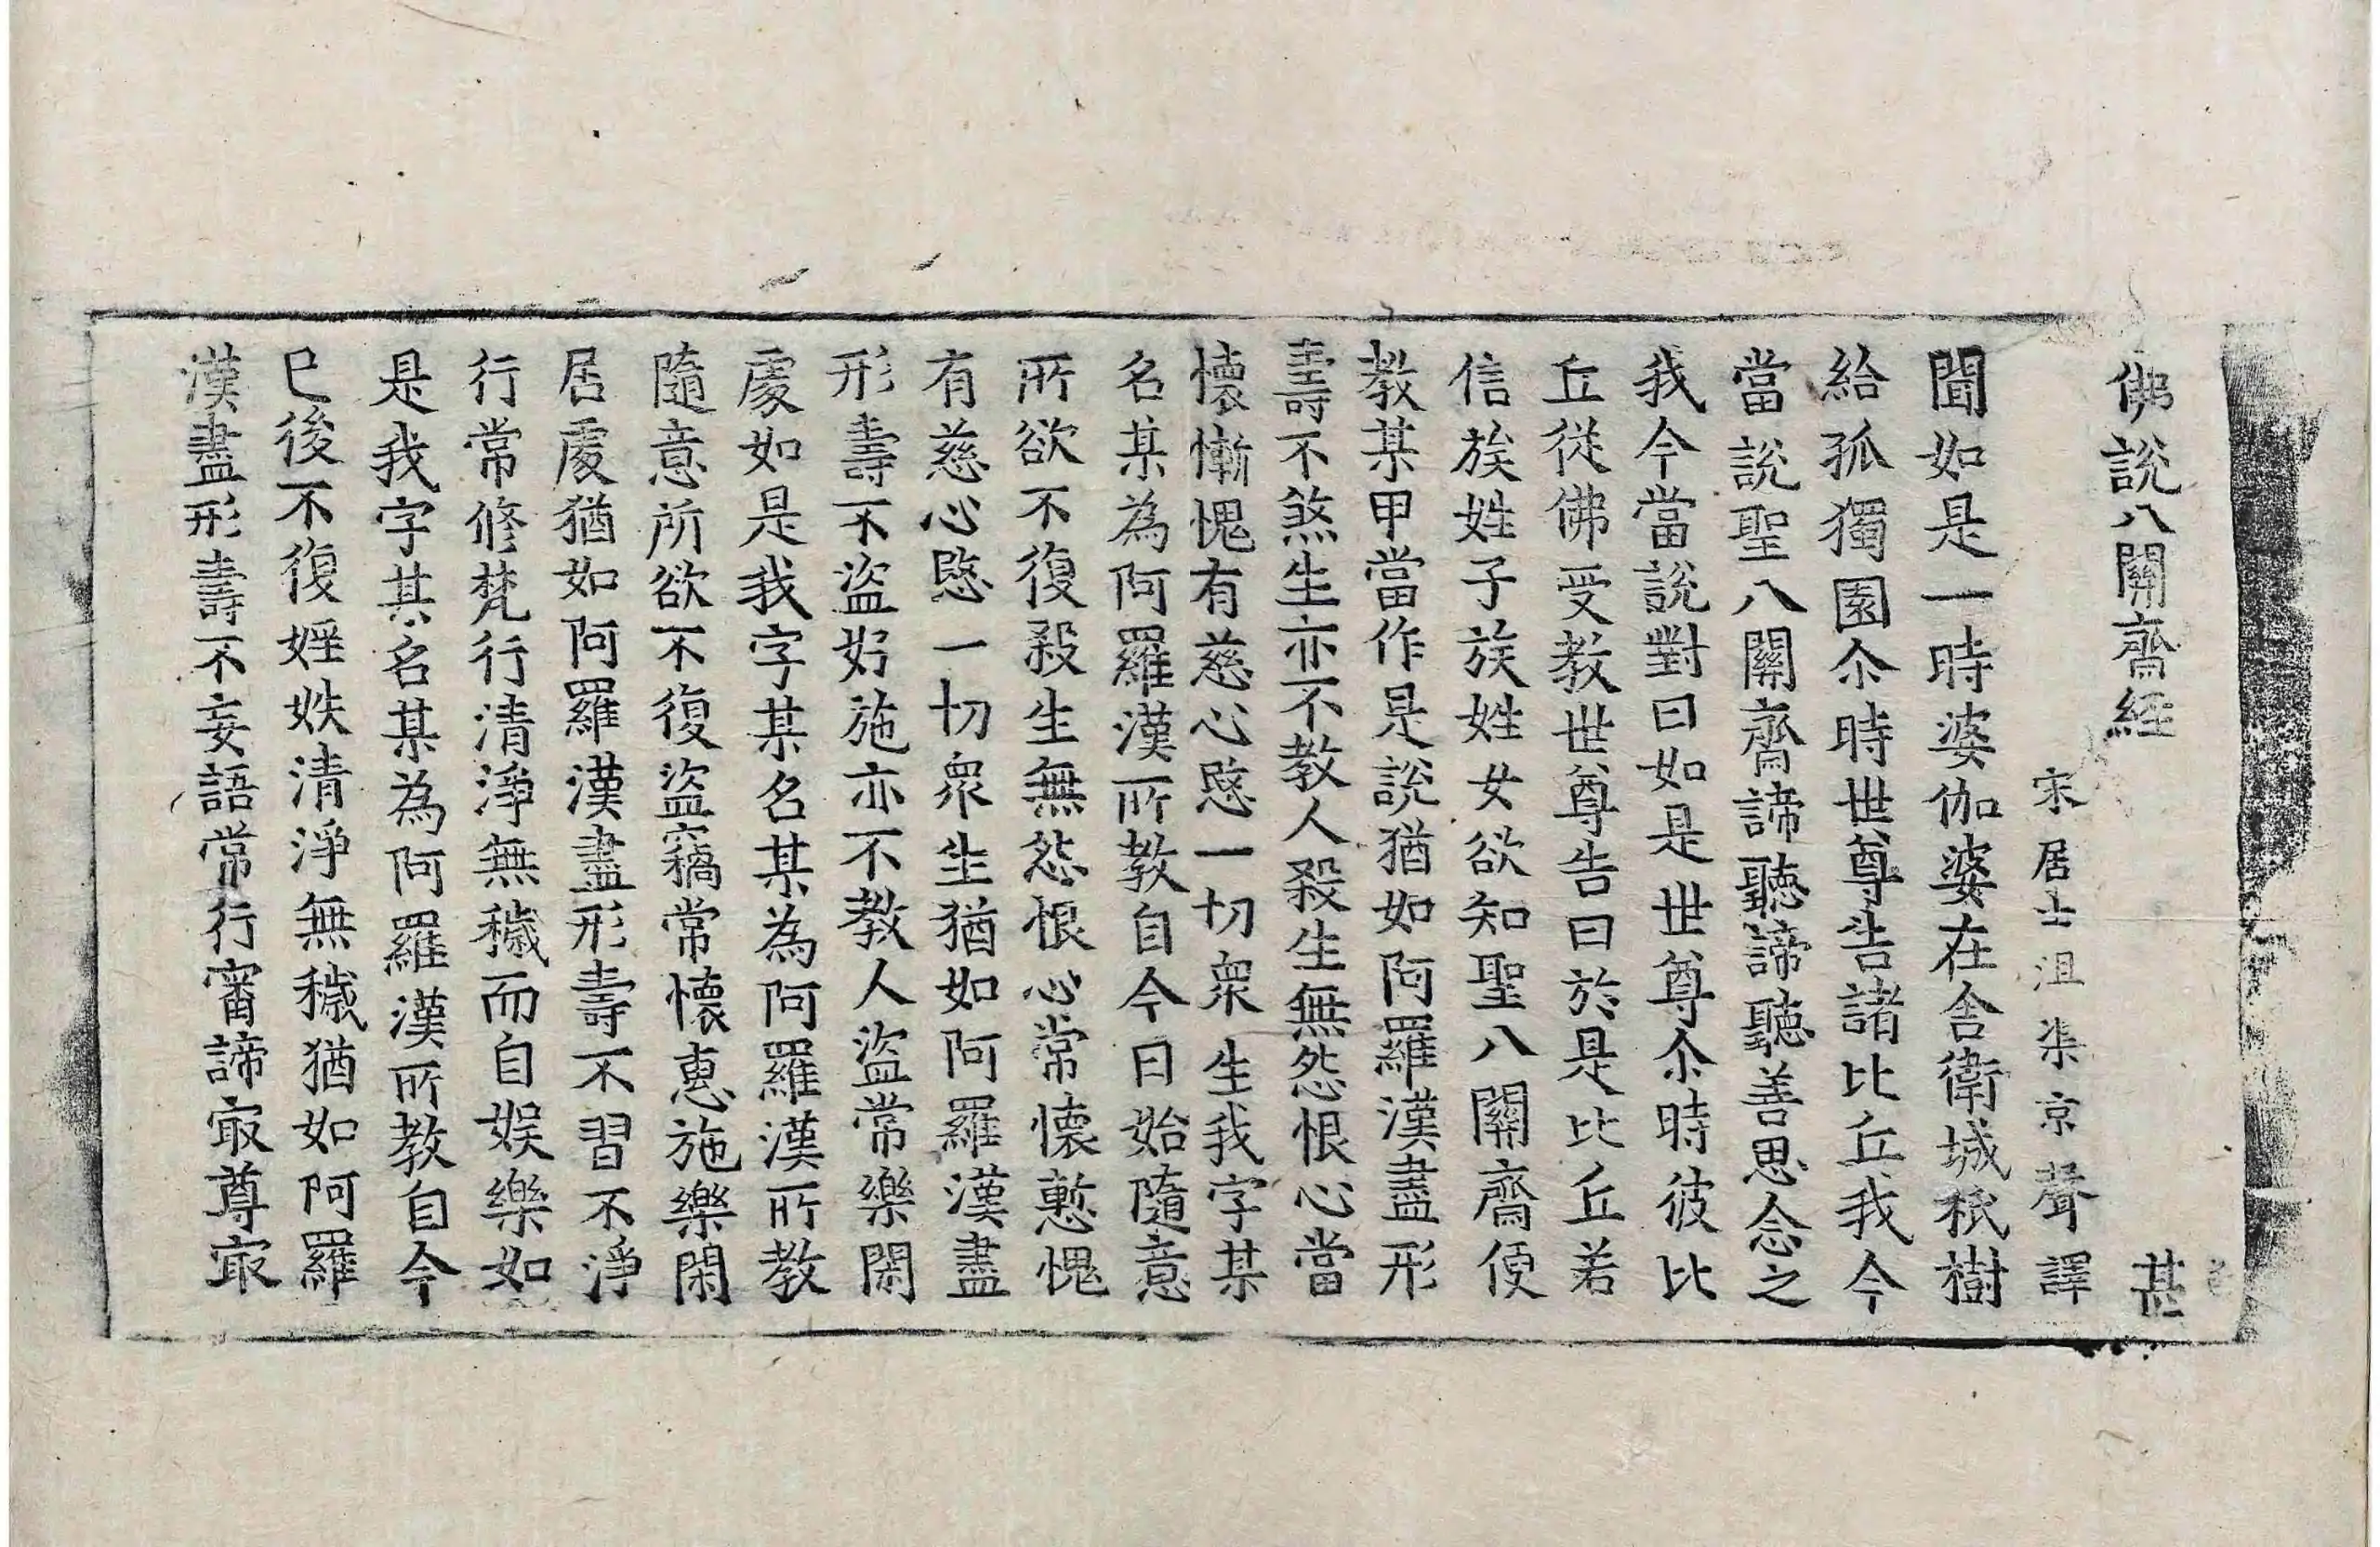 佛說八關齋經 甚
宋居士沮渠京聲譯
聞如是一時婆伽婆在舍衛城秖樹
給孤獨園尒時世尊告諸比丘我今
當說聖八關齋諦聽諦聽善思念之
我今當說對曰如是世尊尒時彼比
丘從佛受教世尊告曰於是比丘若
信族姓子族姓女欲知聖八關齋便
教某甲當作是說猶如阿羅漢盡形
壽不煞生亦不教人殺生無怨恨心當
懷慚愧有慈心愍一切衆生我字某
名某為阿羅漢所教自今日始隨意
所欲不復殺生無怨恨心常懷慙愧
有慈心愍一切衆生猶如阿羅漢盡
形壽不盜好施亦不教人盜常樂閑
處如是我字某名某為阿羅漢所教
隨意所欲不復盜竊常懷惠施樂閑
居處猶如阿羅漢盡形壽不習不淨
行常修梵行清淨無穢而自娛樂如
是我字某名某為阿羅漢所教自今
已後不復婬妷清淨無穢猶如阿羅
漢盡形壽不妄語常行審諦㝡尊㝡